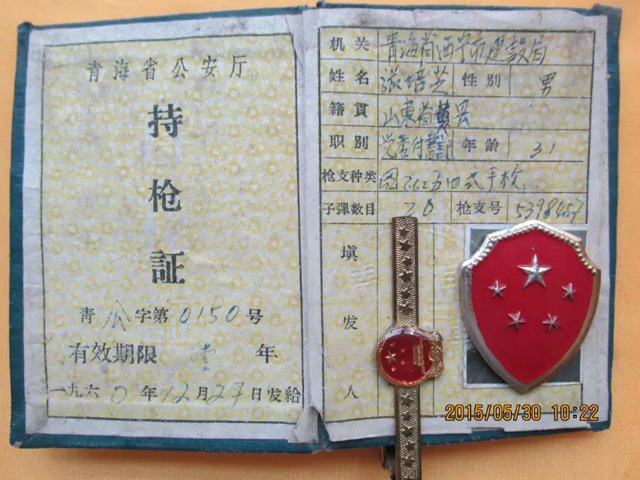 青海省公安厅
持
枪
証
青公字第0150号
有效期限 壹 年
一九六0年12月27日发給
机关 青海省西宁市建設局
姓名 张培芝 性別 男
籍貫 山东省黄县
职別 年龄 31
枪支种类 国7.62五四式手枪
子彈數目 20 枪支号 5398457
填
发
人
2015/05/30 10:22